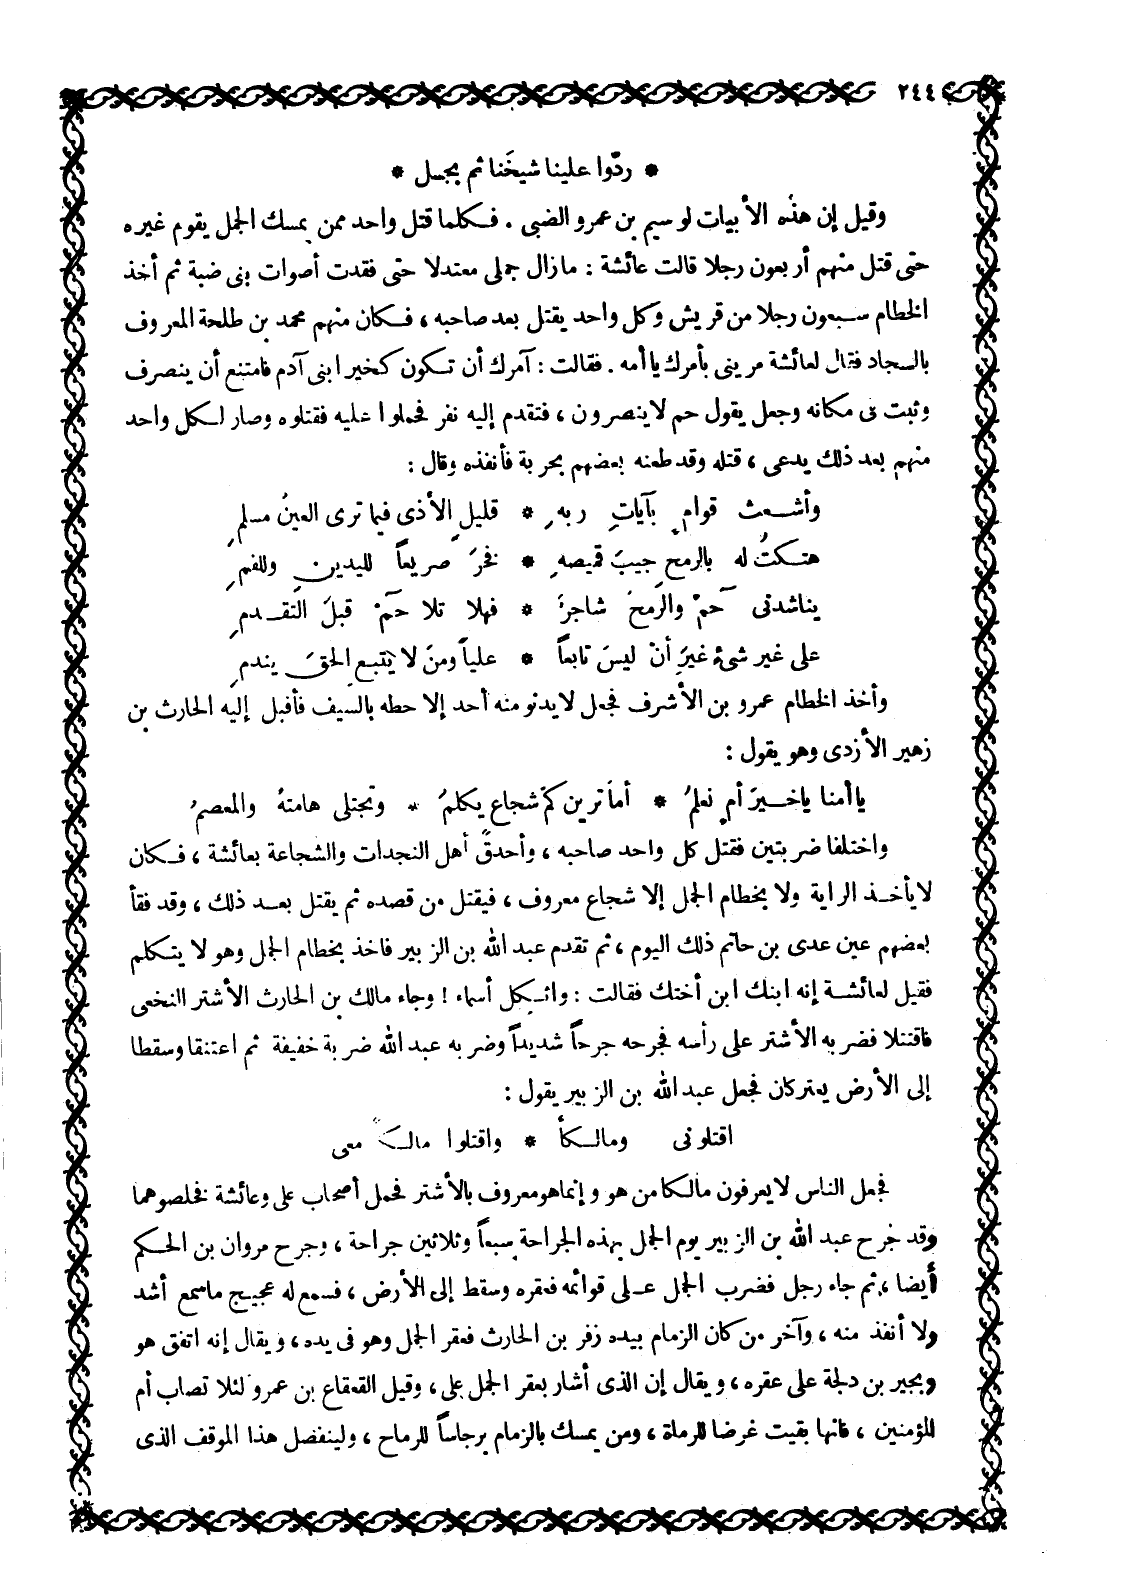 ٢٤٤
* ردّوا علينا شيخَنا ثم بجسل *
وقيل إن هذه الأبيات لوسيم بن عمرو الضبى . فكلما قتل واحد ممن يمسك الجمل يقوم غيره
حتى قتل منهم أربعون رجلا قالت عائشة : مازال جملى معتدلا حتى فقدت أصوات بنى ضبة ثم أخذ
الخطام سبعون رجلا من قريش وكل واحد يقتل بعد صاحبه ، فكان منهم محمد بن طلحة المعروف
بالسجاد فقال لعائشة مرينى بأمرك يا أمه . فقالت : آمرك أن تكون كخير ابنى آدم فامتنع أن ينصرف
وثبت فى مكانه وجعل يقول حم لا ينصرون ، فتقدم إليه نفر فحملوا عليه فقتلوه وصار لكل واحد
منهم بعد ذلك يدعى ، قتله وقد طعنه بعضهم بحربة فأنفذه وقال :
وأشعث قوامٍ بآياتِ ربهِ * قليلِ الأذى فيما ترى العينُ مسلمِ
هتكتُ له بالرمحِ جيبَ قميصهِ * فخرَ صريعاً لليدينِ وللفمِ
يناشدنى حمَ والرمحُ شاجرَ * فهلا تلا حمَ قبلَ التقدمِ
على غير شىءٍ غيرَ أنْ ليسَ تابعاً * علياً ومنَ لا يتبعِ الحقَ يندمِ
وأخذ الخطام عمرو بن الأشرف فجعل لا يدنو منه أحد إلا حطه بالسيف فأقبل إليه الحارث بن
زهير الأزدى وهو يقول :
يا أمنا يا خيرَ أمٍ نعلمُ * أما ترين كمّ شجاع يكلمُ * وتجتلى هامتهُ والمعصمُ
واختلفا ضربتين فقتل كل واحد صاحبه ، وأحدق أهل النجدات والشجاعة بعائشة ، فكان
لا يأخذ الراية ولا بخطام الجمل إلا شجاع معروف ، فيقتل من قصده ثم يقتل بعد ذلك ، وقد فقأ
بعضهم عين عدى بن حاتم ذلك اليوم ، ثم تقدم عبد الله بن الزبير فاخذ بخطام الجمل وهو لا يتكلم
فقيل لعائشة إنه ابنك ابن أختك فقالت : واثكل أسماء ! وجاء مالك بن الحارث الأشتر النخعى
فاقتتلا فضربه الأشتر على رأسه فجرحه جرحاً شديداً وضربه عبد الله ضربة خفيفة ثم اعتنقا وسقطا
إلى الأرض يعتركان فجعل عبد الله بن الزبير يقول :
اقتلونى ومالكاً * واقتلوا مالكاً معى
فجعل الناس لا يعرفون مالكا من هو وإنما هو معروف بالأشتر فحمل أصحاب على وعائشة فخلصوهما
وقد جرح عبد الله بن الزبير يوم الجمل بهذه الجراحة سبعاً وثلاثين جراحة ، وجرح مروان بن الحكم
أيضا ، ثم جاء رجل فضرب الجمل على قوائمه فعقره وسقط إلى الأرض ، فسمع له عجيج ماسمع أشد
ولا أنفذ منه ، وآخر من كان الزمام بيده زفر بن الحارث فعقر الجمل وهو فى يده ، ويقال إنه اتفق هو
وبجير بن دلجة على عقره ، ويقال إن الذى أشار بعقر الجمل على ، وقيل القعقاع بن عمرو لئلا تصاب أم
المؤمنين ، فانها بقيت غرضا للرماة ، ومن يمسك بالزمام برجاساً للرماح ، ولينفصل هذا الموقف الذى